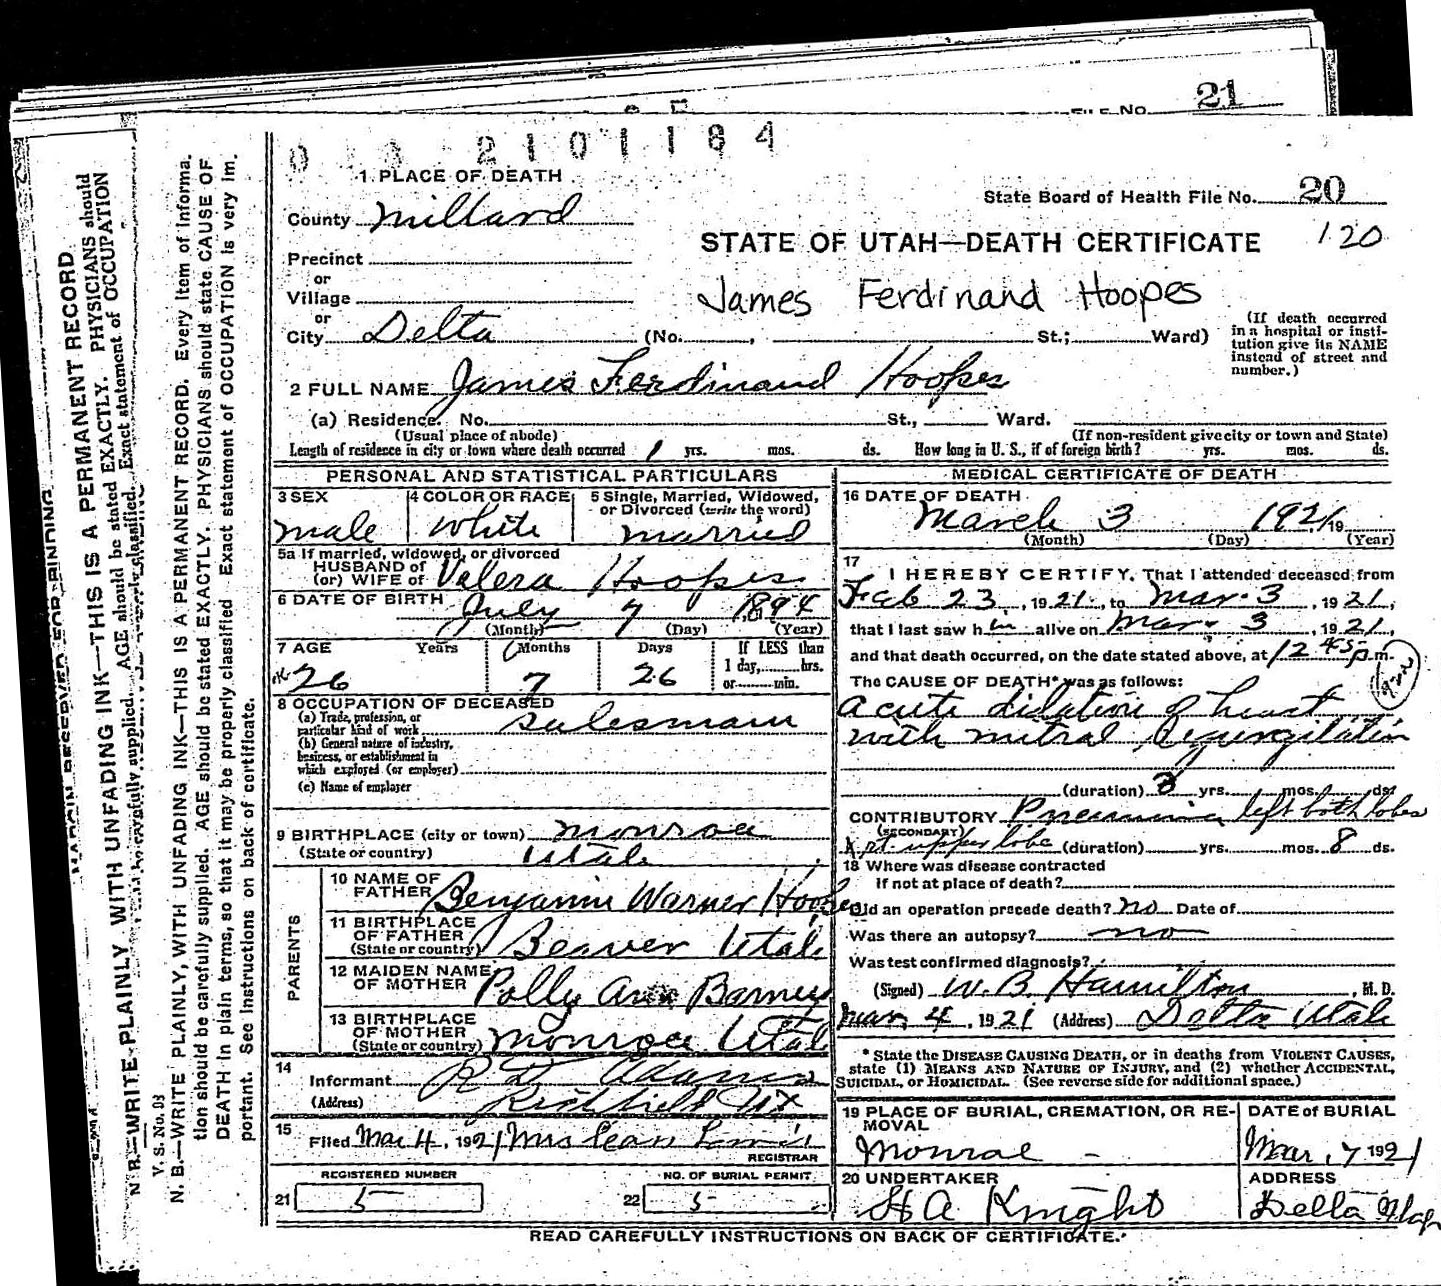 21
FILE No.
0 3 2101184
1 PLACE OF DEATH
State Board of Health File No. 20
County Millard
STATE OF UTAH—DEATH CERTIFICATE 120
Precinct
or
Village
James Ferdinand Hoopes
or
City Delta (No. , St.; Ward)
(If death occurred
in a hospital or insti-
tution give its NAME
instead of street and
number.)
2 FULL NAME James Ferdinand Hoopes
(a) Residence. No. St., Ward.
(Usual place of abode) (If non-resident give city or town and State)
Length of residence in city or town where death occurred 1 yrs. mos. ds. How long in U. S., if of foreign birth? yrs. mos. ds.
PERSONAL AND STATISTICAL PARTICULARS
3 SEX
male
4 COLOR OR RACE
white
5 Single, Married, Widowed,
or Divorced (write the word)
married
5a If married, widowed, or divorced
HUSBAND of
(or) WIFE of Valera Hoopes
6 DATE OF BIRTH July 7 1894
(Month) (Day) (Year)
7 AGE Years Months Days If LESS than
1 day, hrs.
or min.
26 7 26
8 OCCUPATION OF DECEASED
(a) Trade, profession, or
particular kind of work salesman
(b) General nature of industry,
business, or establishment in
which employed (or employer)
(c) Name of employer
9 BIRTHPLACE (city or town) Monroe
(State or country) Utah
PARENTS
10 NAME OF
FATHER Benjamin Warner Hoopes
11 BIRTHPLACE
OF FATHER
(State or country) Beaver Utah
12 MAIDEN NAME
OF MOTHER Polly Ann Barney
13 BIRTHPLACE
OF MOTHER
(State or country) Monroe Utah
14
Informant Adams
(Address) Richfield Ut
15
Filed Mar 4, 1921 Mrs
REGISTRAR
REGISTERED NUMBER
21 5
NO. OF BURIAL PERMIT
22 5
MEDICAL CERTIFICATE OF DEATH
16 DATE OF DEATH
March 3 1921 19
(Month) (Day) (Year)
17
I HEREBY CERTIFY, That I attended deceased from
Feb 23, 1921, to Mar. 3, 1921,
that I last saw him alive on Mar. 3, 1921,
and that death occurred, on the date stated above, at 12 45 p.m.
The CAUSE OF DEATH* was as follows:
acute dilation of heart
with mitral regurgitation
(duration) 3 yrs. mos. ds.
CONTRIBUTORY Pneumonia left both lobes
(SECONDARY)
& rt. upper lobe (duration) yrs. mos. 8 ds.
18 Where was disease contracted
If not at place of death?
Did an operation precede death? no Date of
Was there an autopsy? no
Was test confirmed diagnosis?
(Signed) W. B. Hamilton, M. D.
Mar, 4, 1921 (Address) Delta Utah
* State the DISEASE CAUSING DEATH, or in deaths from VIOLENT CAUSES,
state (1) MEANS AND NATURE OF INJURY, and (2) whether ACCIDENTAL,
SUICIDAL, or HOMICIDAL. (See reverse side for additional space.)
19 PLACE OF BURIAL, CREMATION, OR RE-
MOVAL
Monroe
DATE of BURIAL
Mar, 7 1921
20 UNDERTAKER
H A Knight
ADDRESS
Delta Utah
READ CAREFULLY INSTRUCTIONS ON BACK OF CERTIFICATE.
MARGIN RESERVED FOR BINDING
N. B.—WRITE PLAINLY, WITH UNFADING INK—THIS IS A PERMANENT RECORD
be carefully supplied. AGE should be stated EXACTLY. PHYSICIANS should
classified. Exact statement of OCCUPATION
V. S. No. 93
N. B.—WRITE PLAINLY, WITH UNFADING INK—THIS IS A PERMANENT RECORD. Every item of informa-
tion should be carefully supplied. AGE should be stated EXACTLY. PHYSICIANS should state CAUSE OF
DEATH in plain terms, so that it may be properly classified. Exact statement of OCCUPATION is very im-
portant. See instructions on back of certificate.